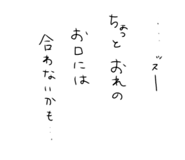 … ズー
ちょっと おれの
お口には
合わないかも…